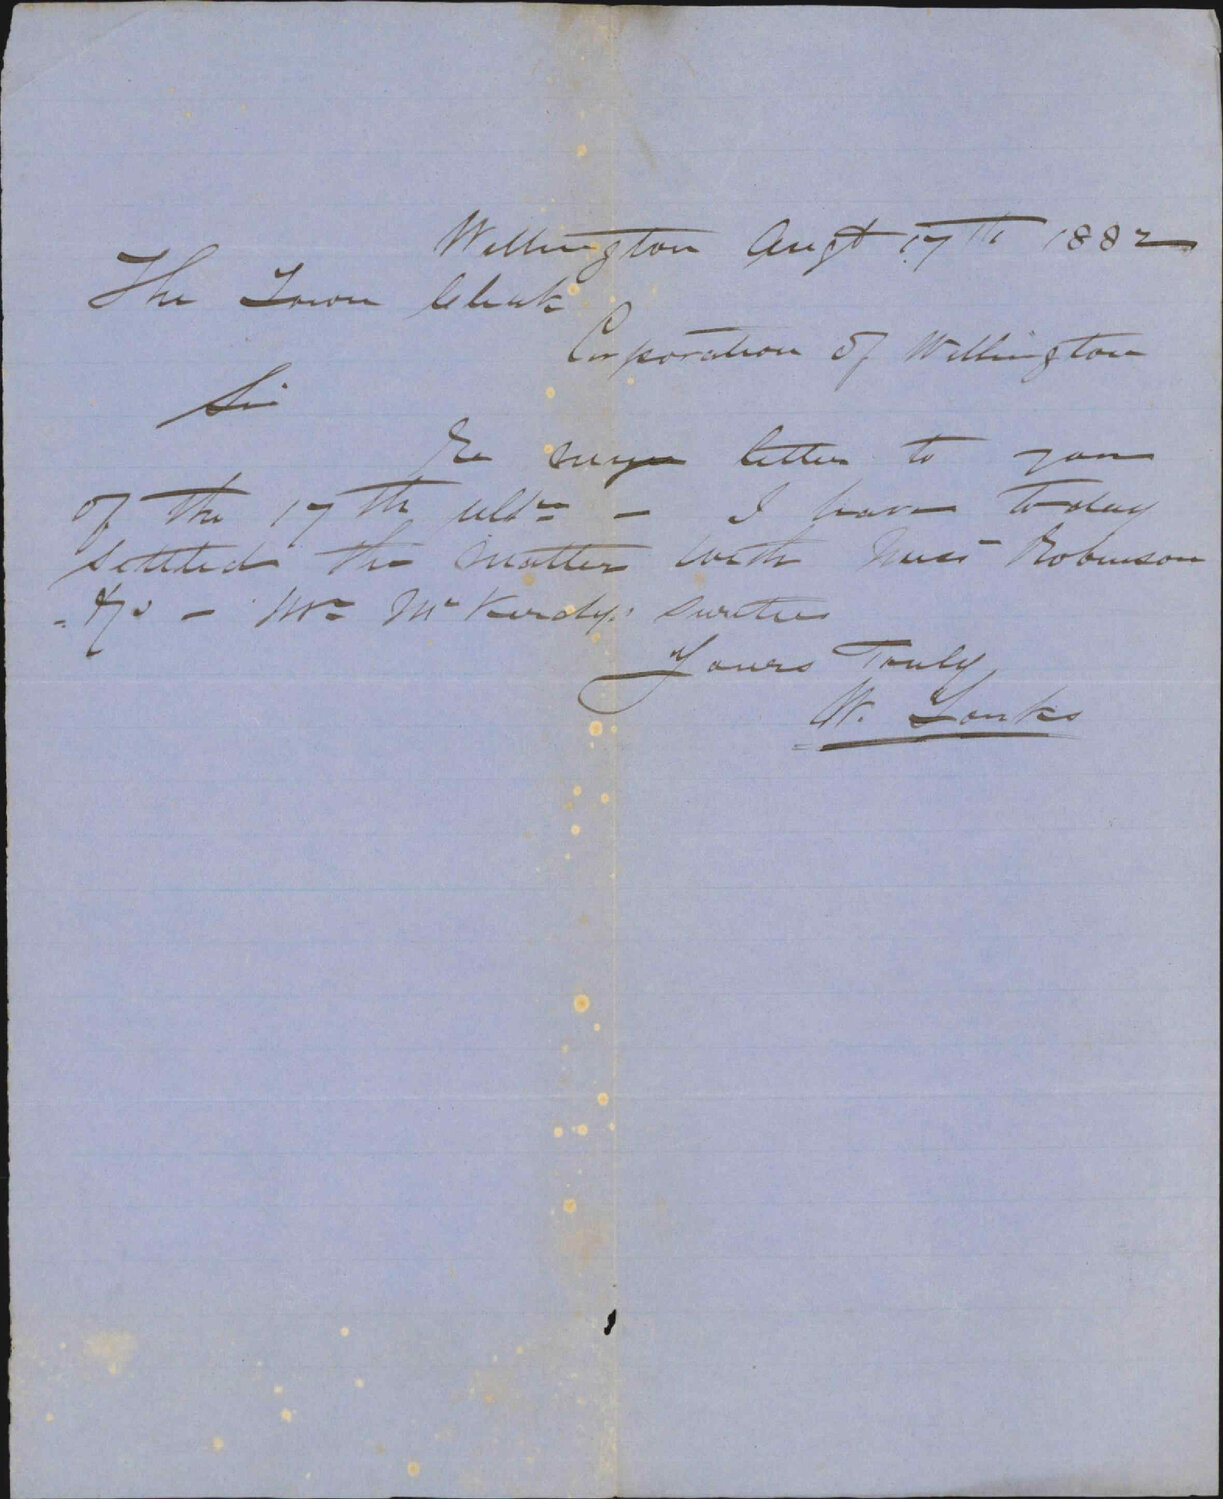 Wellington Augt 17th 1882
The Town Clerk
Corporation of Wellington
Sir
Re my letter to you
of the 17th ulto — I have today
settled the matter with Messrs Robinson
& Co — Mr McKirdy's sureties
Yours Truly
W. Tonks